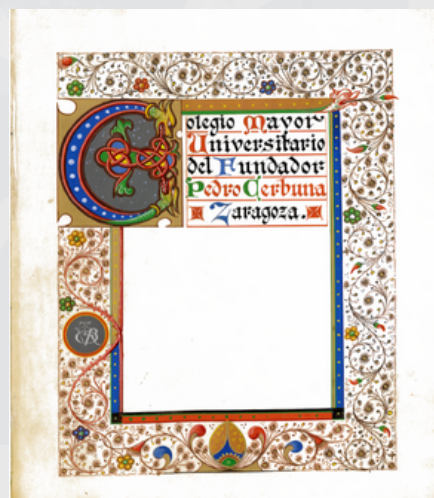 Colegio Mayor
Universitario
del Fundador
Pedro Cerbuna
Zaragoza.